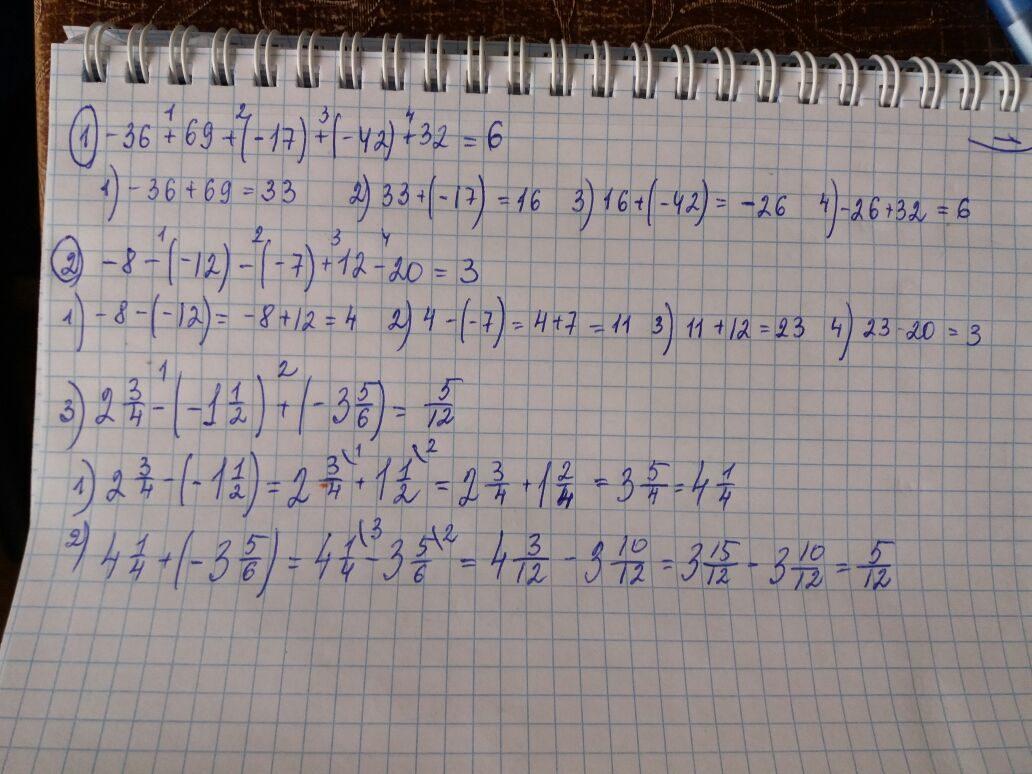 1) -36 + 69 + (-17) + (-42) + 32 = 6
1) -36 + 69 = 33 2) 33 + (-17) = 16 3) 16 + (-42) = -26 4) -26 + 32 = 6
2) -8 - (-12) - (-7) + 12 - 20 = 3
1) -8 - (-12) = -8 + 12 = 4 2) 4 - (-7) = 4 + 7 = 11 3) 11 + 12 = 23 4) 23 - 20 = 3
3) 2 3/4 - (-1 1/2) + (-3 5/6) = 5/12
1) 2 3/4 - (-1 1/2) = 2 3/4 \1 + 1 1/2 \2 = 2 3/4 + 1 2/4 = 3 5/4 = 4 1/4
2) 4 1/4 + (-3 5/6) = 4 1/4 \3 - 3 5/6 \2 = 4 3/12 - 3 10/12 = 3 15/12 - 3 10/12 = 5/12